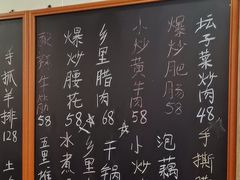 坛子菜炒肉 48
爆炒肥肠 58
小炒黄牛肉 58
乡里腊肉 68
爆炒腰花 58
牛筋 58
手抓羊排 128
手撕
泡藕
小炒
干锅
乡里
水煮
五里
土